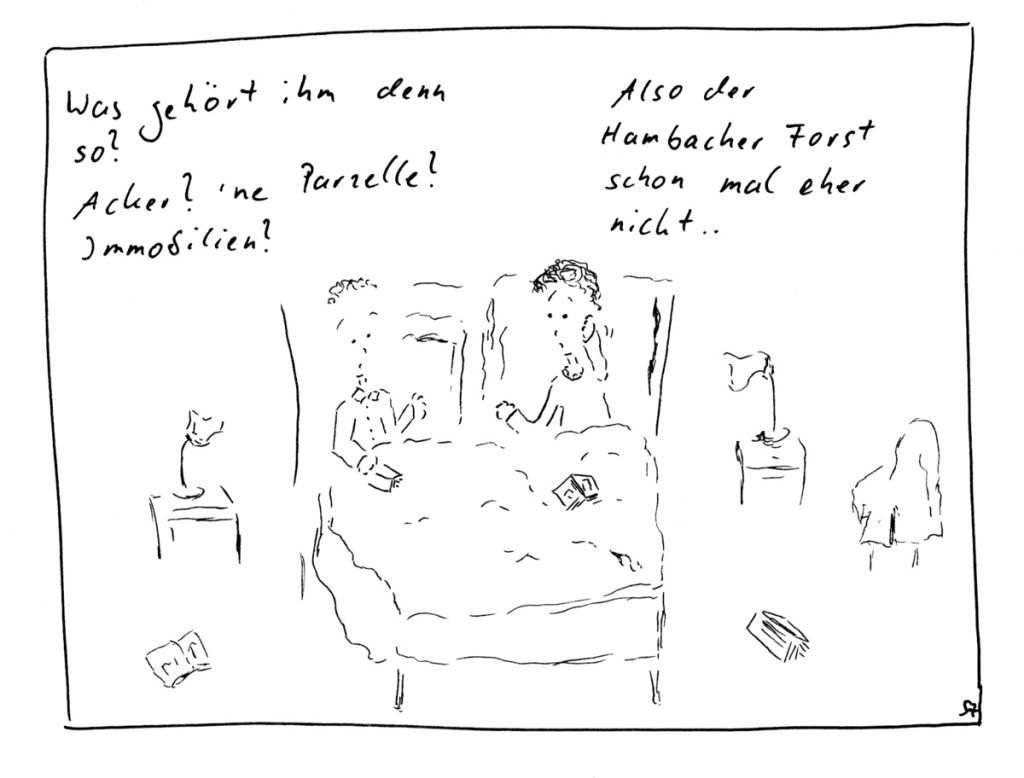 Was gehört ihm denn
so?
Acker? 'ne Parzelle?
Immobilien?
Also der
Hambacher Forst
schon mal eher
nicht..